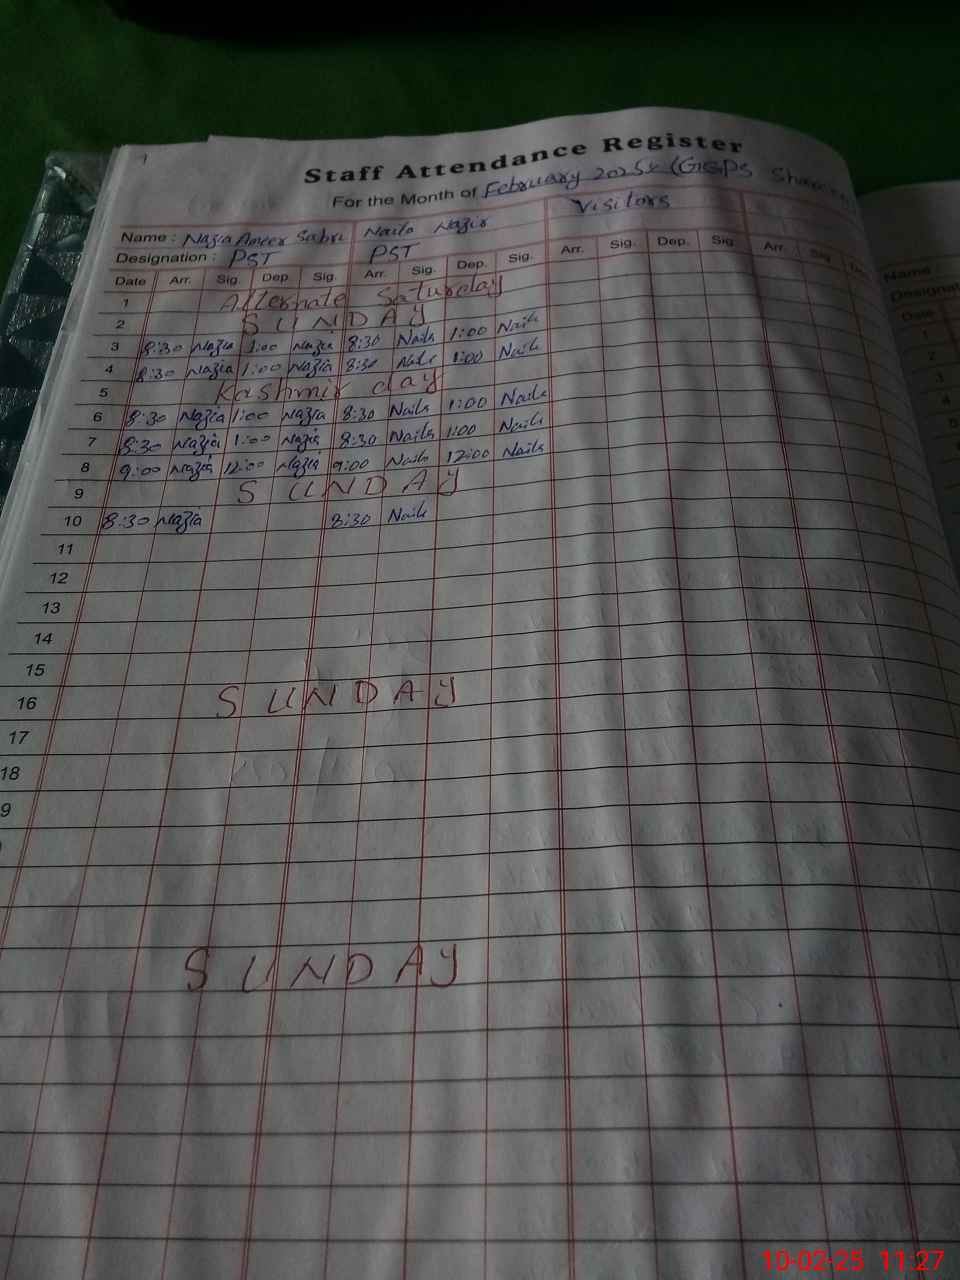 Staff Attendance Register
For the Month of February 2025 (GGPS
Name : Nazia Ameer Sabri Naila Nazir Visitors
Designation : PST PST
Date Arr. Sig. Dep. Sig. Arr. Sig. Dep. Sig. Arr. Sig. Dep. Sig. Arr. Sig.
1 Alternate Saturday
2 SUNDAY
3 8:30 Nazia 1:00 Nazia 8:30 Naila 1:00 Naila
4 8:30 Nazia 1:00 Nazia 8:30 Naila 1:00 Naila
5 Kashmir day
6 8:30 Nazia 1:00 Nazia 8:30 Naila 1:00 Naila
7 8:30 Nazia 1:00 Nazia 8:30 Naila 1:00 Naila
8 9:00 Nazia 12:00 Nazia 9:00 Naila 12:00 Naila
9 SUNDAY
10 8:30 Nazia 8:30 Naila
11
12
13
14
15
16 SUNDAY
17
18
9
SUNDAY
Name
Designat
Date
1
2
3
4
5
10-02-25 11:27